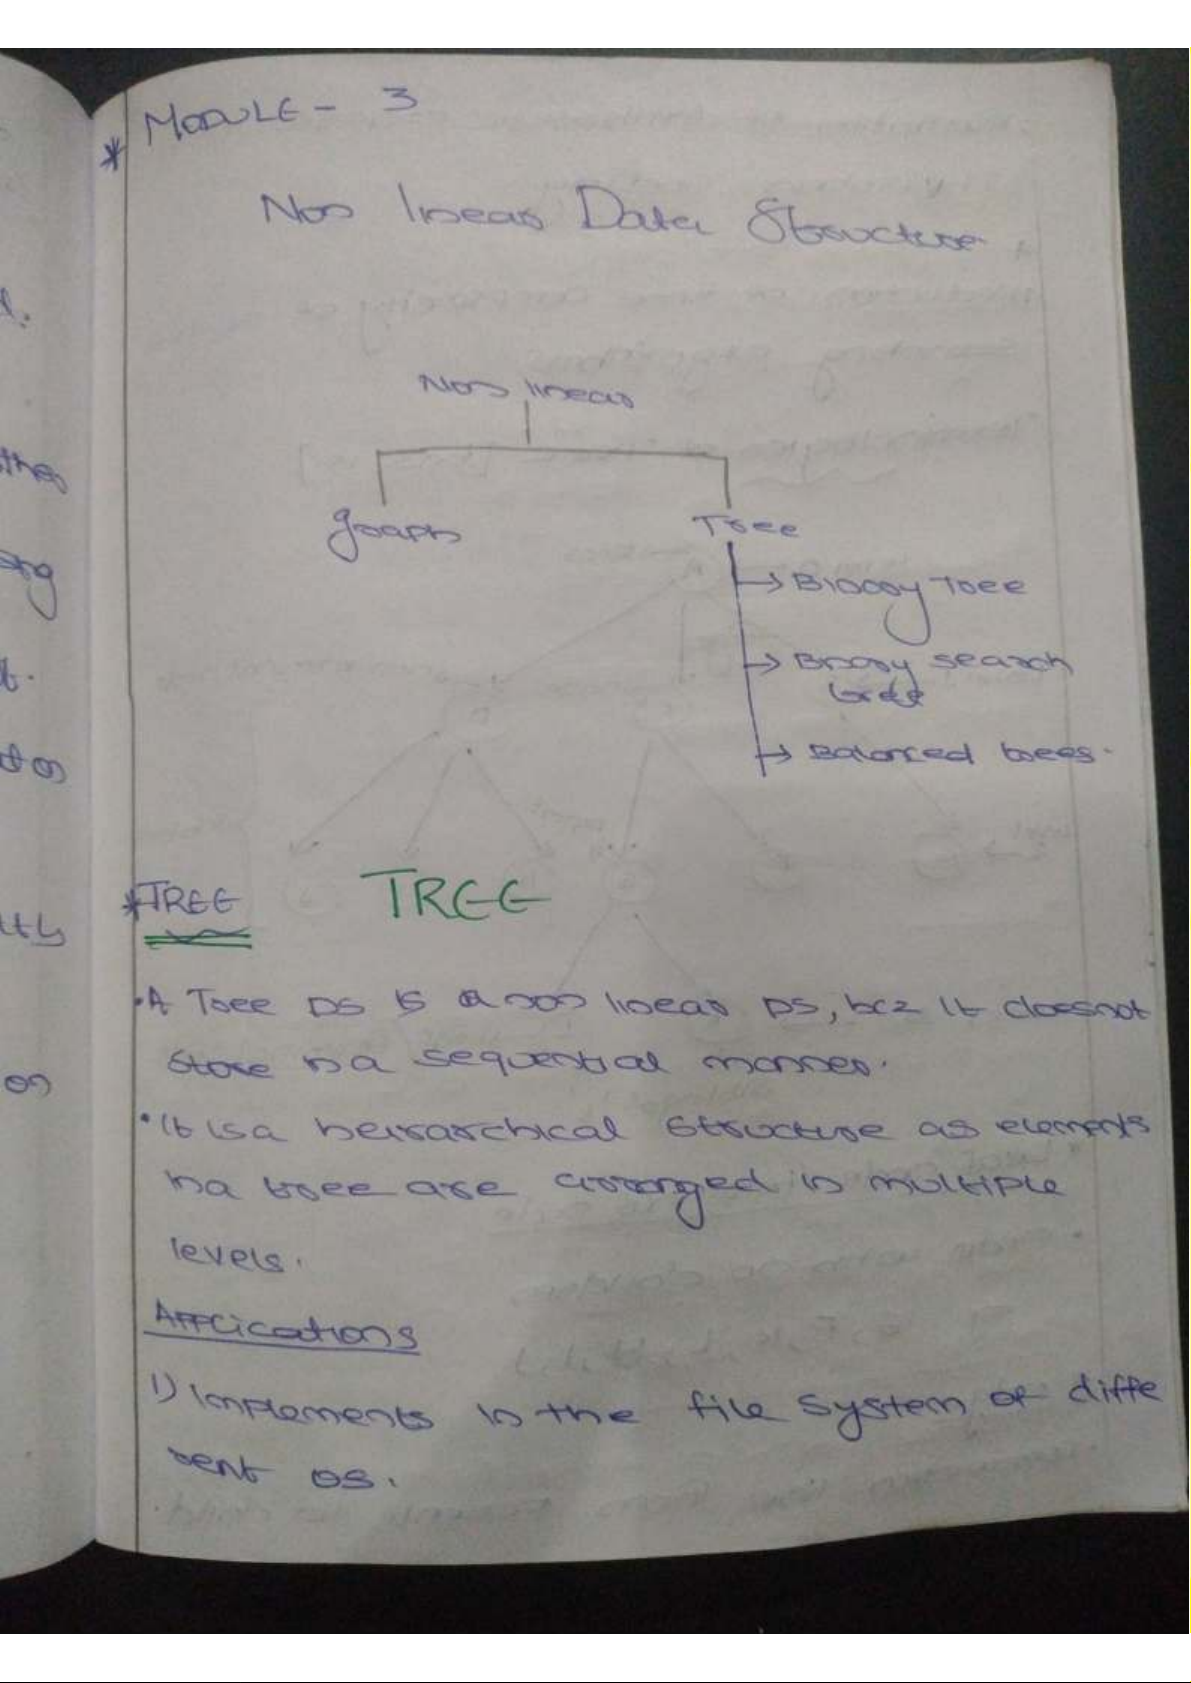 * MODULE - 3
Non linear Data Structure
Non linear
Graph
Tree
→ Binary Tree
→ Binary search
tree
→ Balanced trees.
* TREE
TREE
• A Tree DS is a non linear DS, bcz it doesnot
store in a sequential manner.
• It is a heirarchical structure as elements
in a tree are arranged in multiple
levels.
Applications
1) Implements in the file system of diffe
rent os.